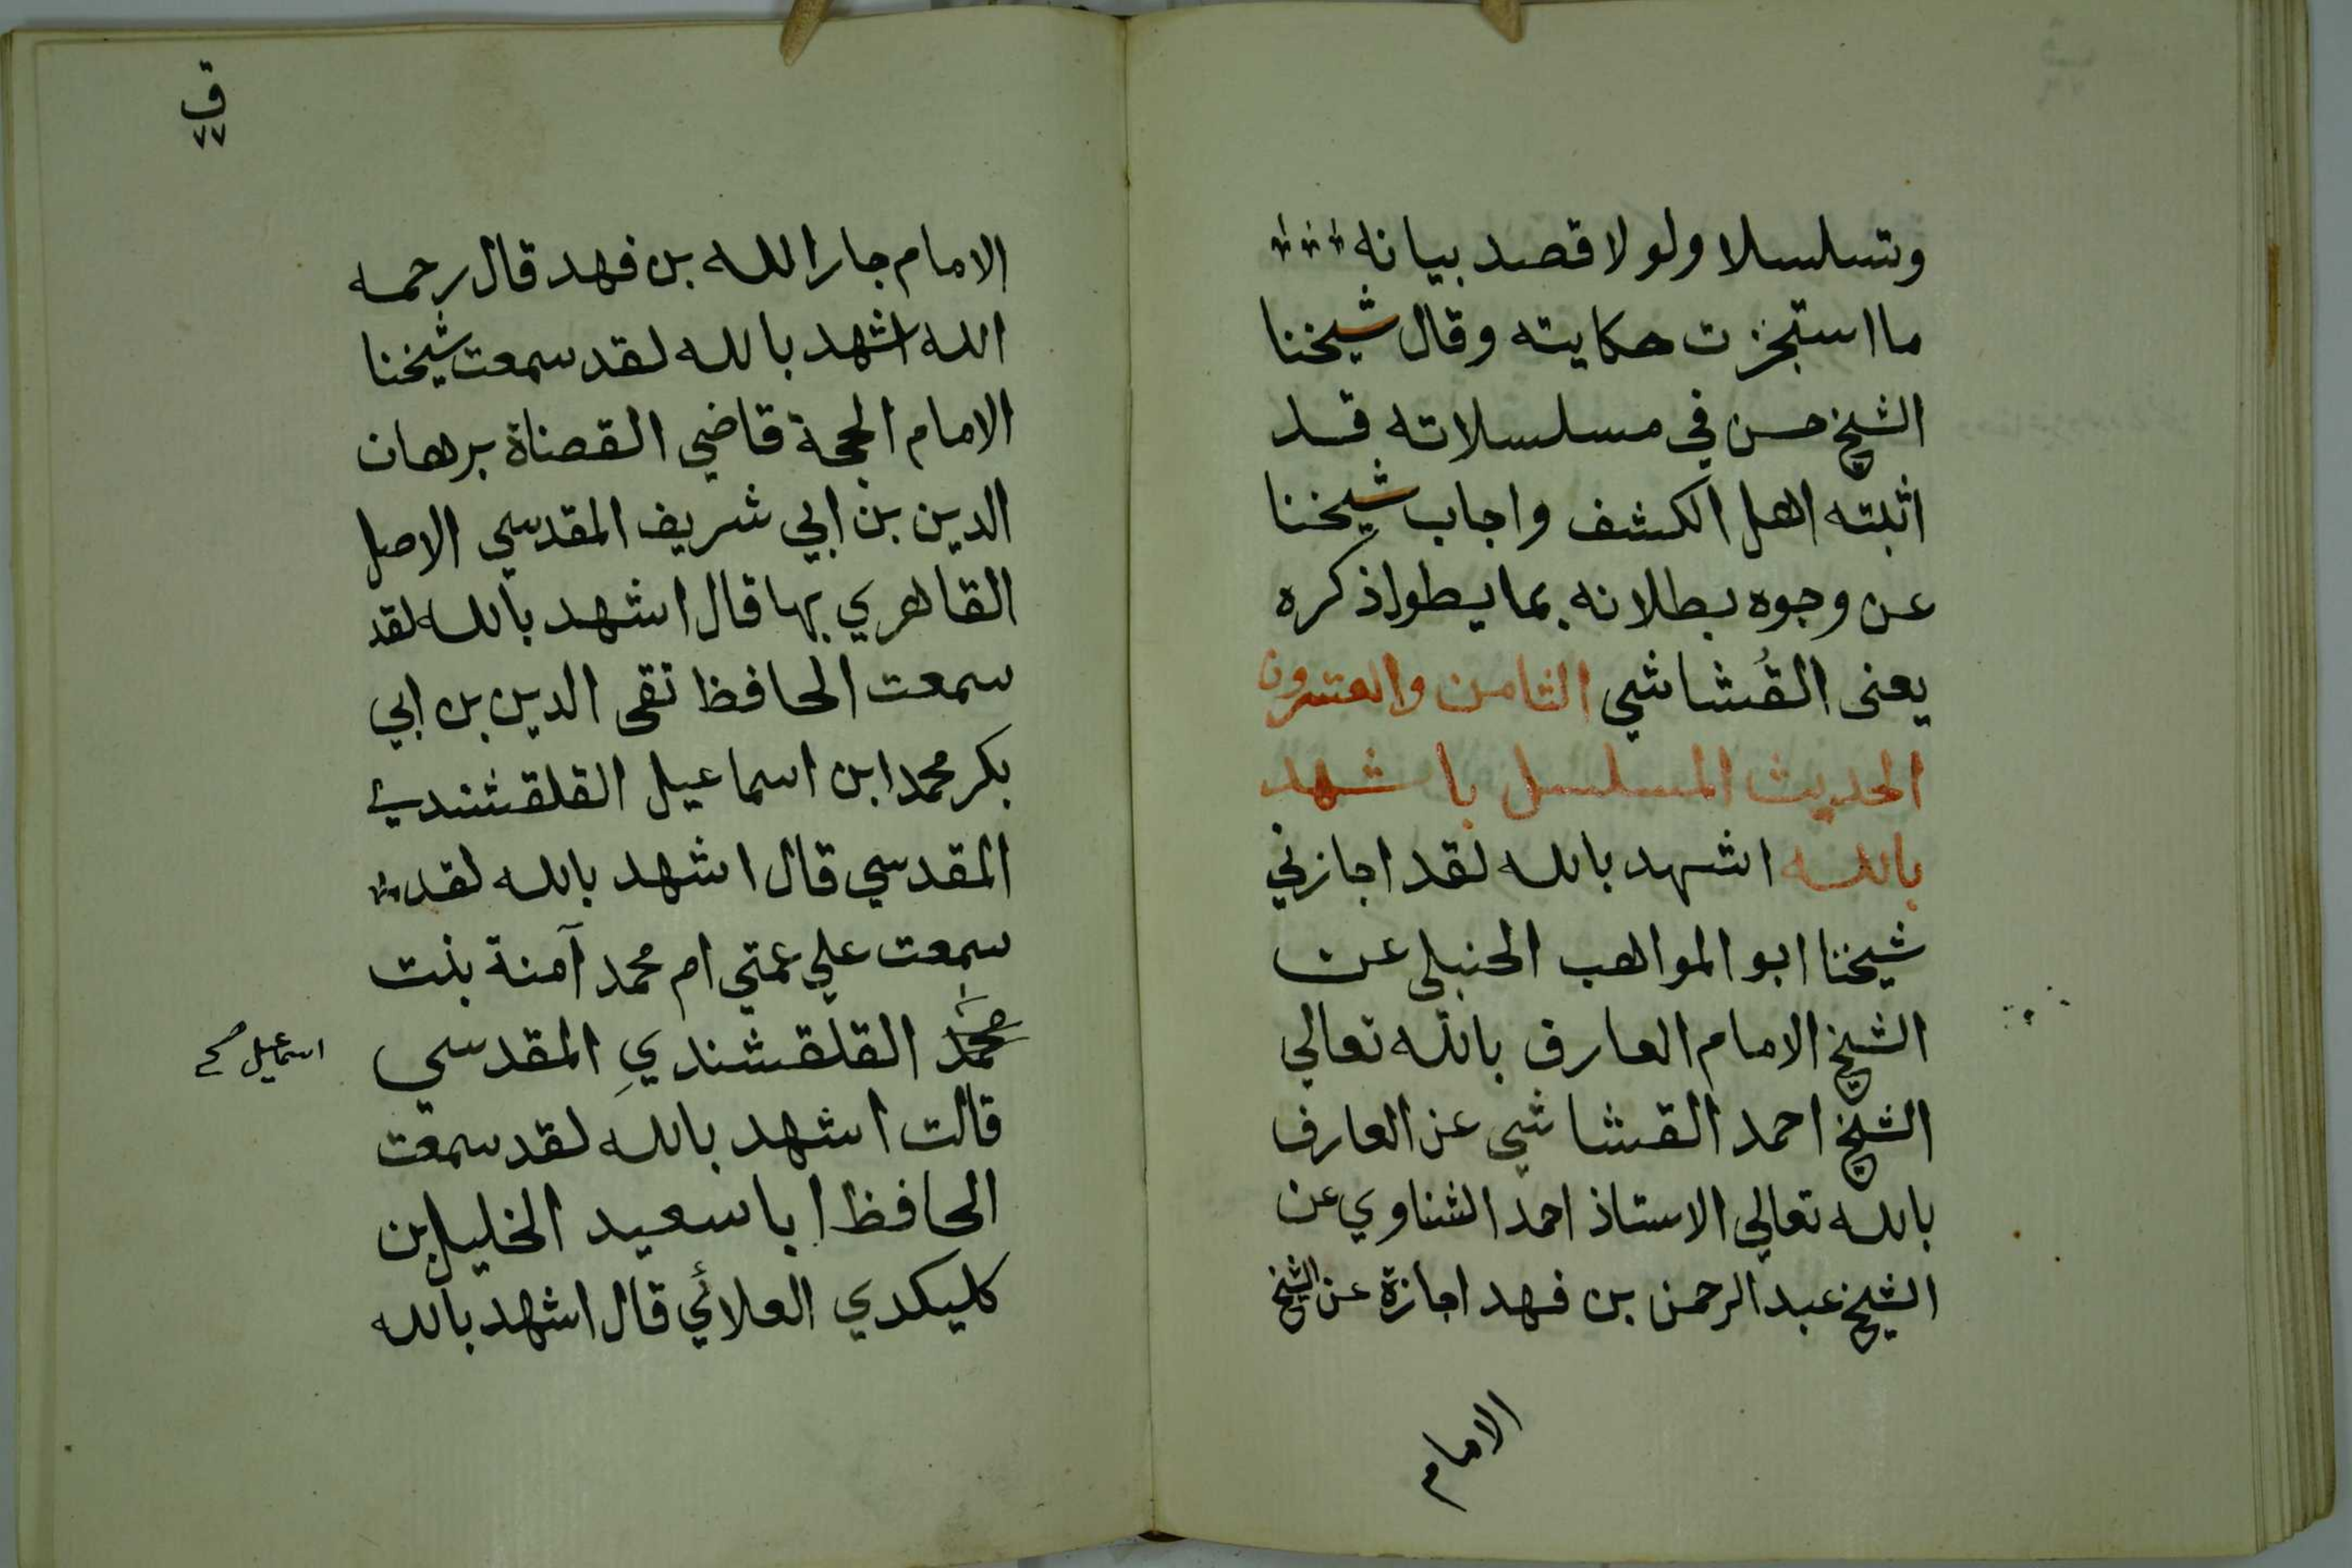 وتسلسلا ولولا قصد بيانه
ما استجزت حكايته وقال شيخنا
الشيخ حسن في مسلسلاته قد
اثبته اهل الكشف واجاب شيخنا
عن وجوه بطلانه بما يطول ذكره
يعنى القُشاشي الثامن والعشرون
الحديث المسلسل باشهد
بالله اشهد بالله لقد اجازني
شيخنا ابو المواهب الحنبلي عن
الشيخ الامام العارف بالله تعالي
الشيخ احمد القشاشي عن العارف
بالله تعالي الاستاذ احمد الشناوي عن
الشيخ عبد الرحمن بن فهد اجازة عن الشيخ
الامام
ق
٧٧
الامام جار الله بن فهد قال رحمه
الله اشهد بالله لقد سمعت شيخنا
الامام الحجة قاضي القضاة برهان
الدين بن ابي شريف المقدسي الاصل
القاهري بها قال اشهد بالله لقد
سمعت الحافظ تقى الدين بن ابي
بكر محمد ابن اسماعيل القلقشندي
المقدسي قال اشهد بالله لقد
سمعت علي عمتي ام محمد آمنة بنت
محمد القلقشنديِ المقدسي
اسماعيل صح
قالت اشهد بالله لقد سمعت
الحافظ ابا سعيد الخليل بن
كليكدي العلائي قال اشهد بالله